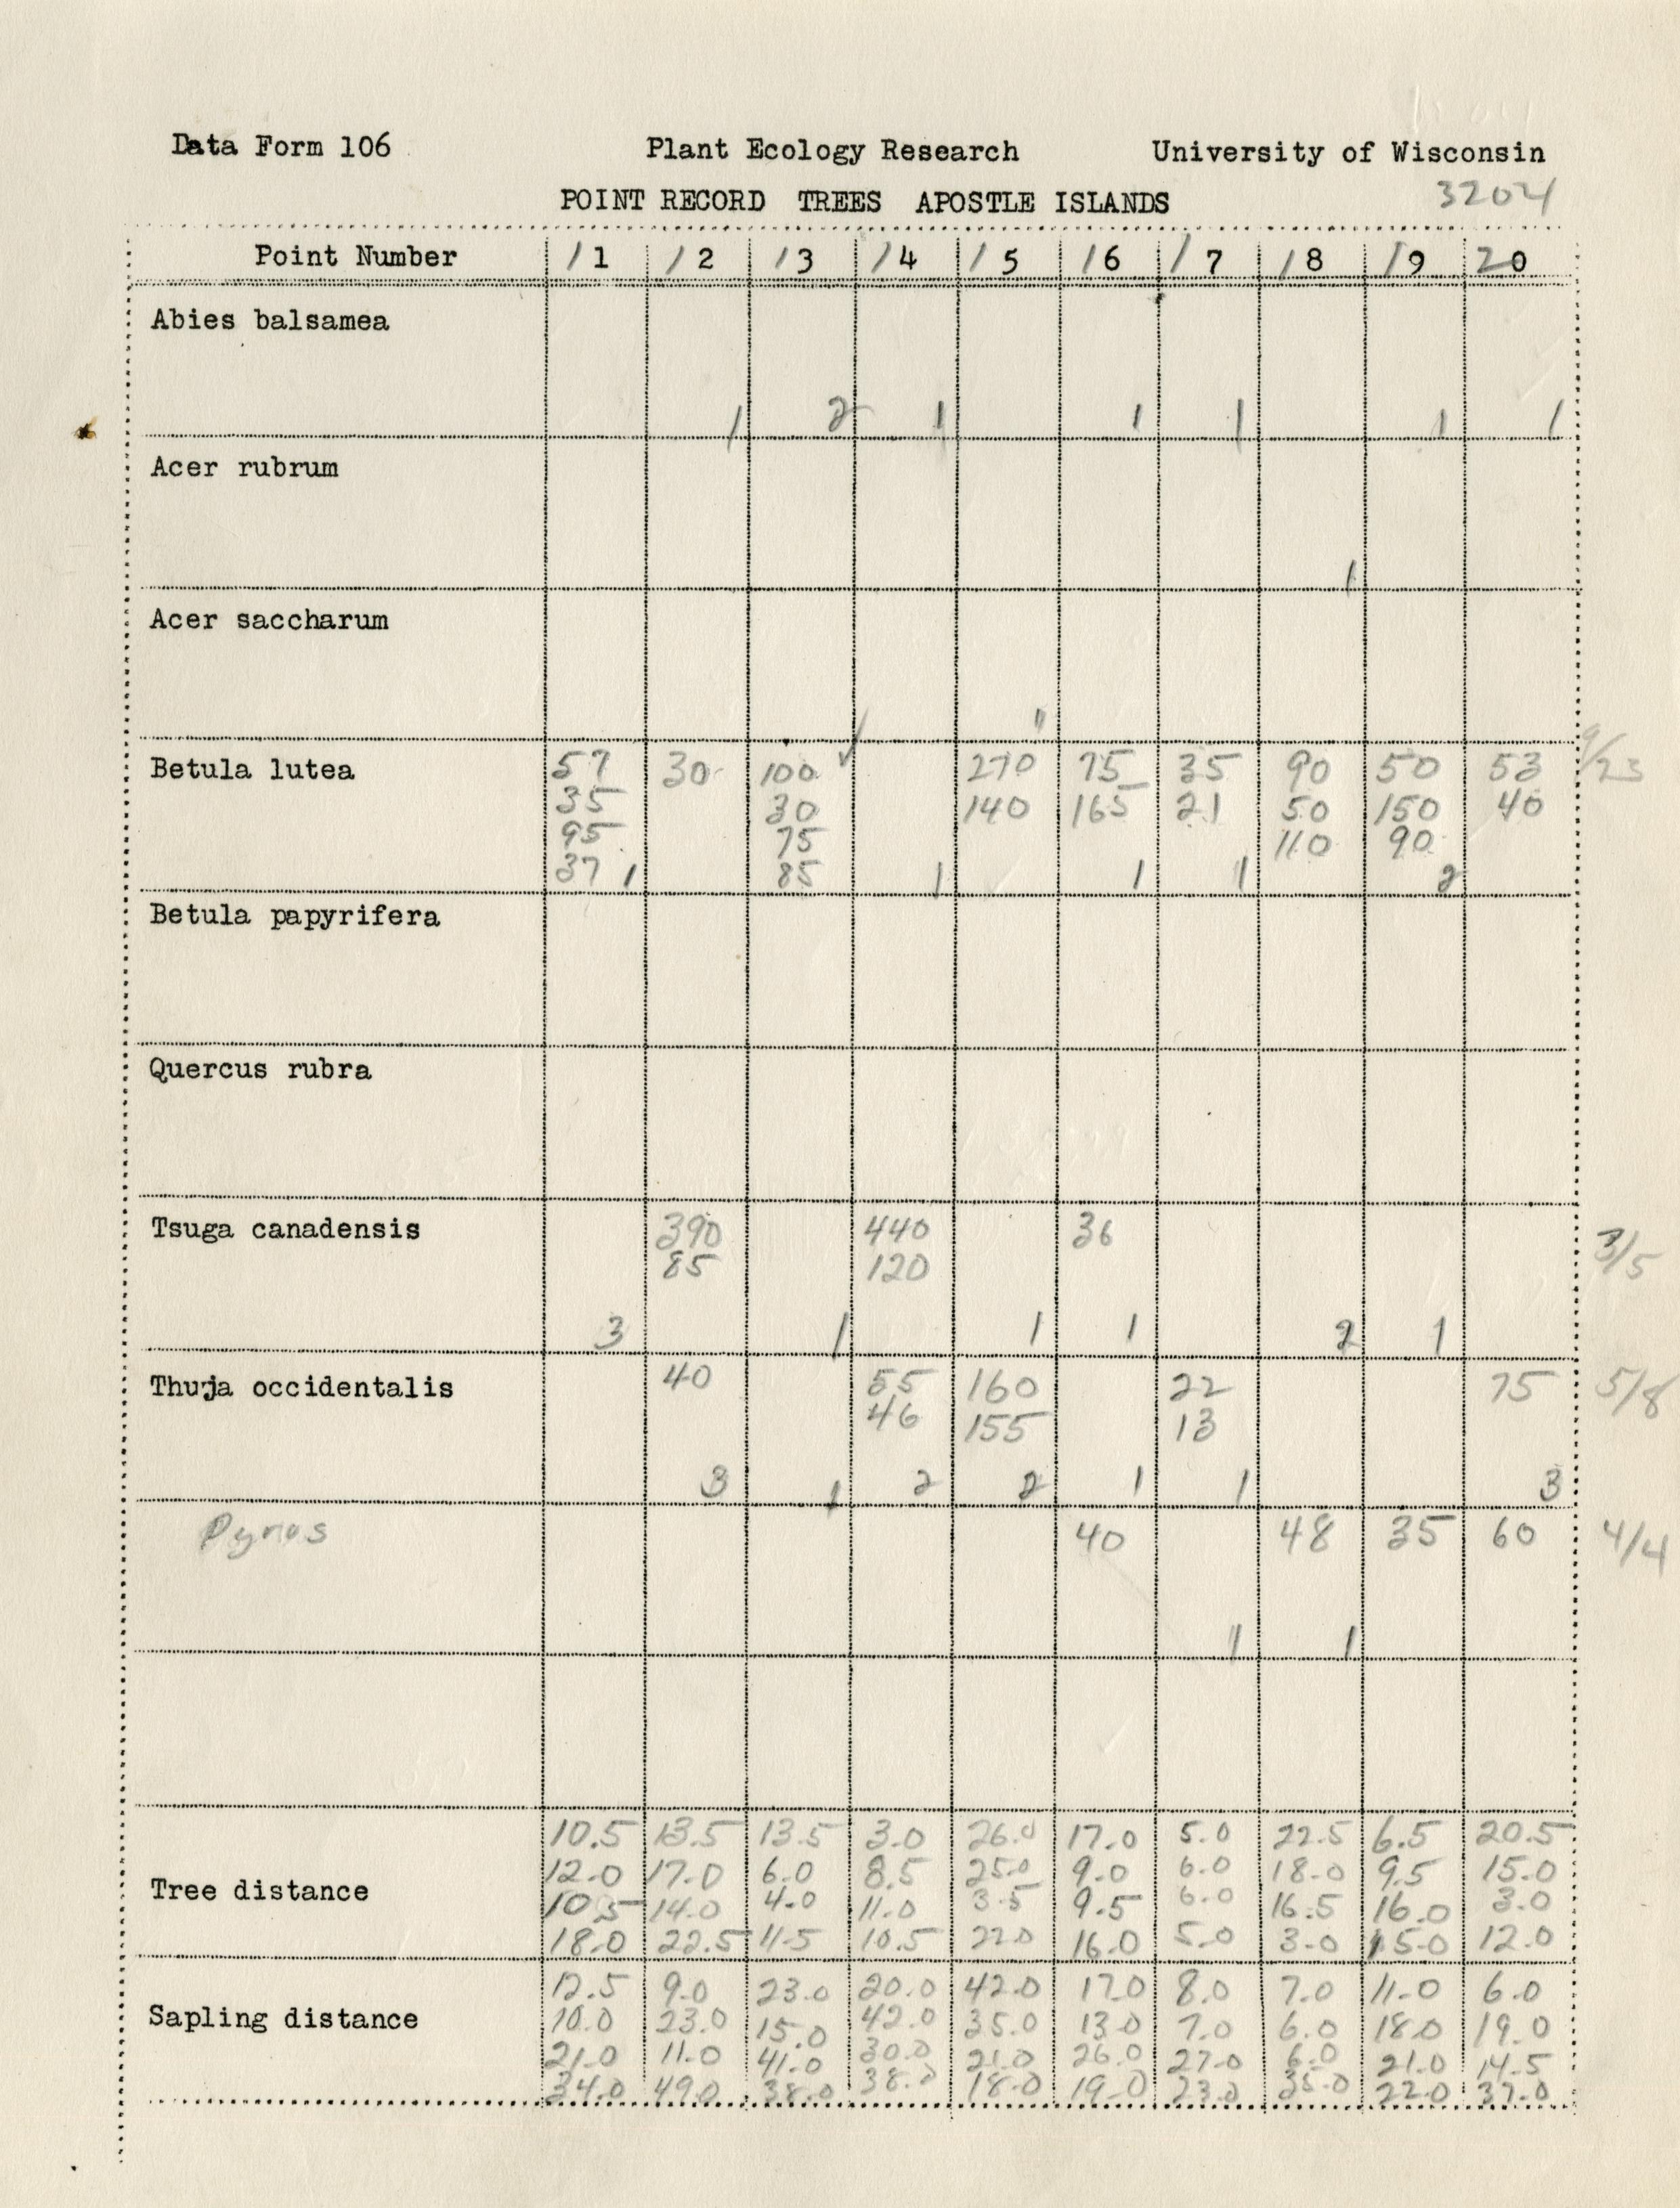 Data Form 106 Plant Ecology Research University of Wisconsin
POINT RECORD TREES APOSTLE ISLANDS 3204
Point Number 11 12 13 14 15 16 17 18 19 20
Abies balsamea
1 2 1 1 1 1 1
Acer rubrum
1
Acer saccharum
Betula lutea 57 30 100 270 75 35 90 50 53 9/23
35 30 140 165 21 50 150 40
95 75 110 90
37 1 85 1 1 1 2
Betula papyrifera
Quercus rubra
Tsuga canadensis 390 440 36 3/5
85 120
3 1 1 1 2 1
Thuja occidentalis 40 55 160 22 75 5/8
46 155 13
3 1 2 2 1 1 3
Pyrus 40 48 35 60 4/4
1 1
10.5 13.5 13.5 3.0 26.0 17.0 5.0 22.5 6.5 20.5
12.0 17.0 6.0 8.5 25.0 9.0 6.0 18.0 9.5 15.0
Tree distance 10.5 14.0 4.0 11.0 3.5 9.5 6.0 16.5 16.0 3.0
18.0 22.5 11.5 10.5 22.0 16.0 5.0 3.0 15.0 12.0
12.5 9.0 23.0 20.0 42.0 17.0 8.0 7.0 11.0 6.0
Sapling distance 10.0 23.0 15.0 42.0 35.0 13.0 7.0 6.0 18.0 19.0
21.0 11.0 41.0 30.0 21.0 26.0 27.0 6.0 21.0 14.5
34.0 49.0 38.0 38.0 18.0 19.0 23.0 35.0 22.0 37.0